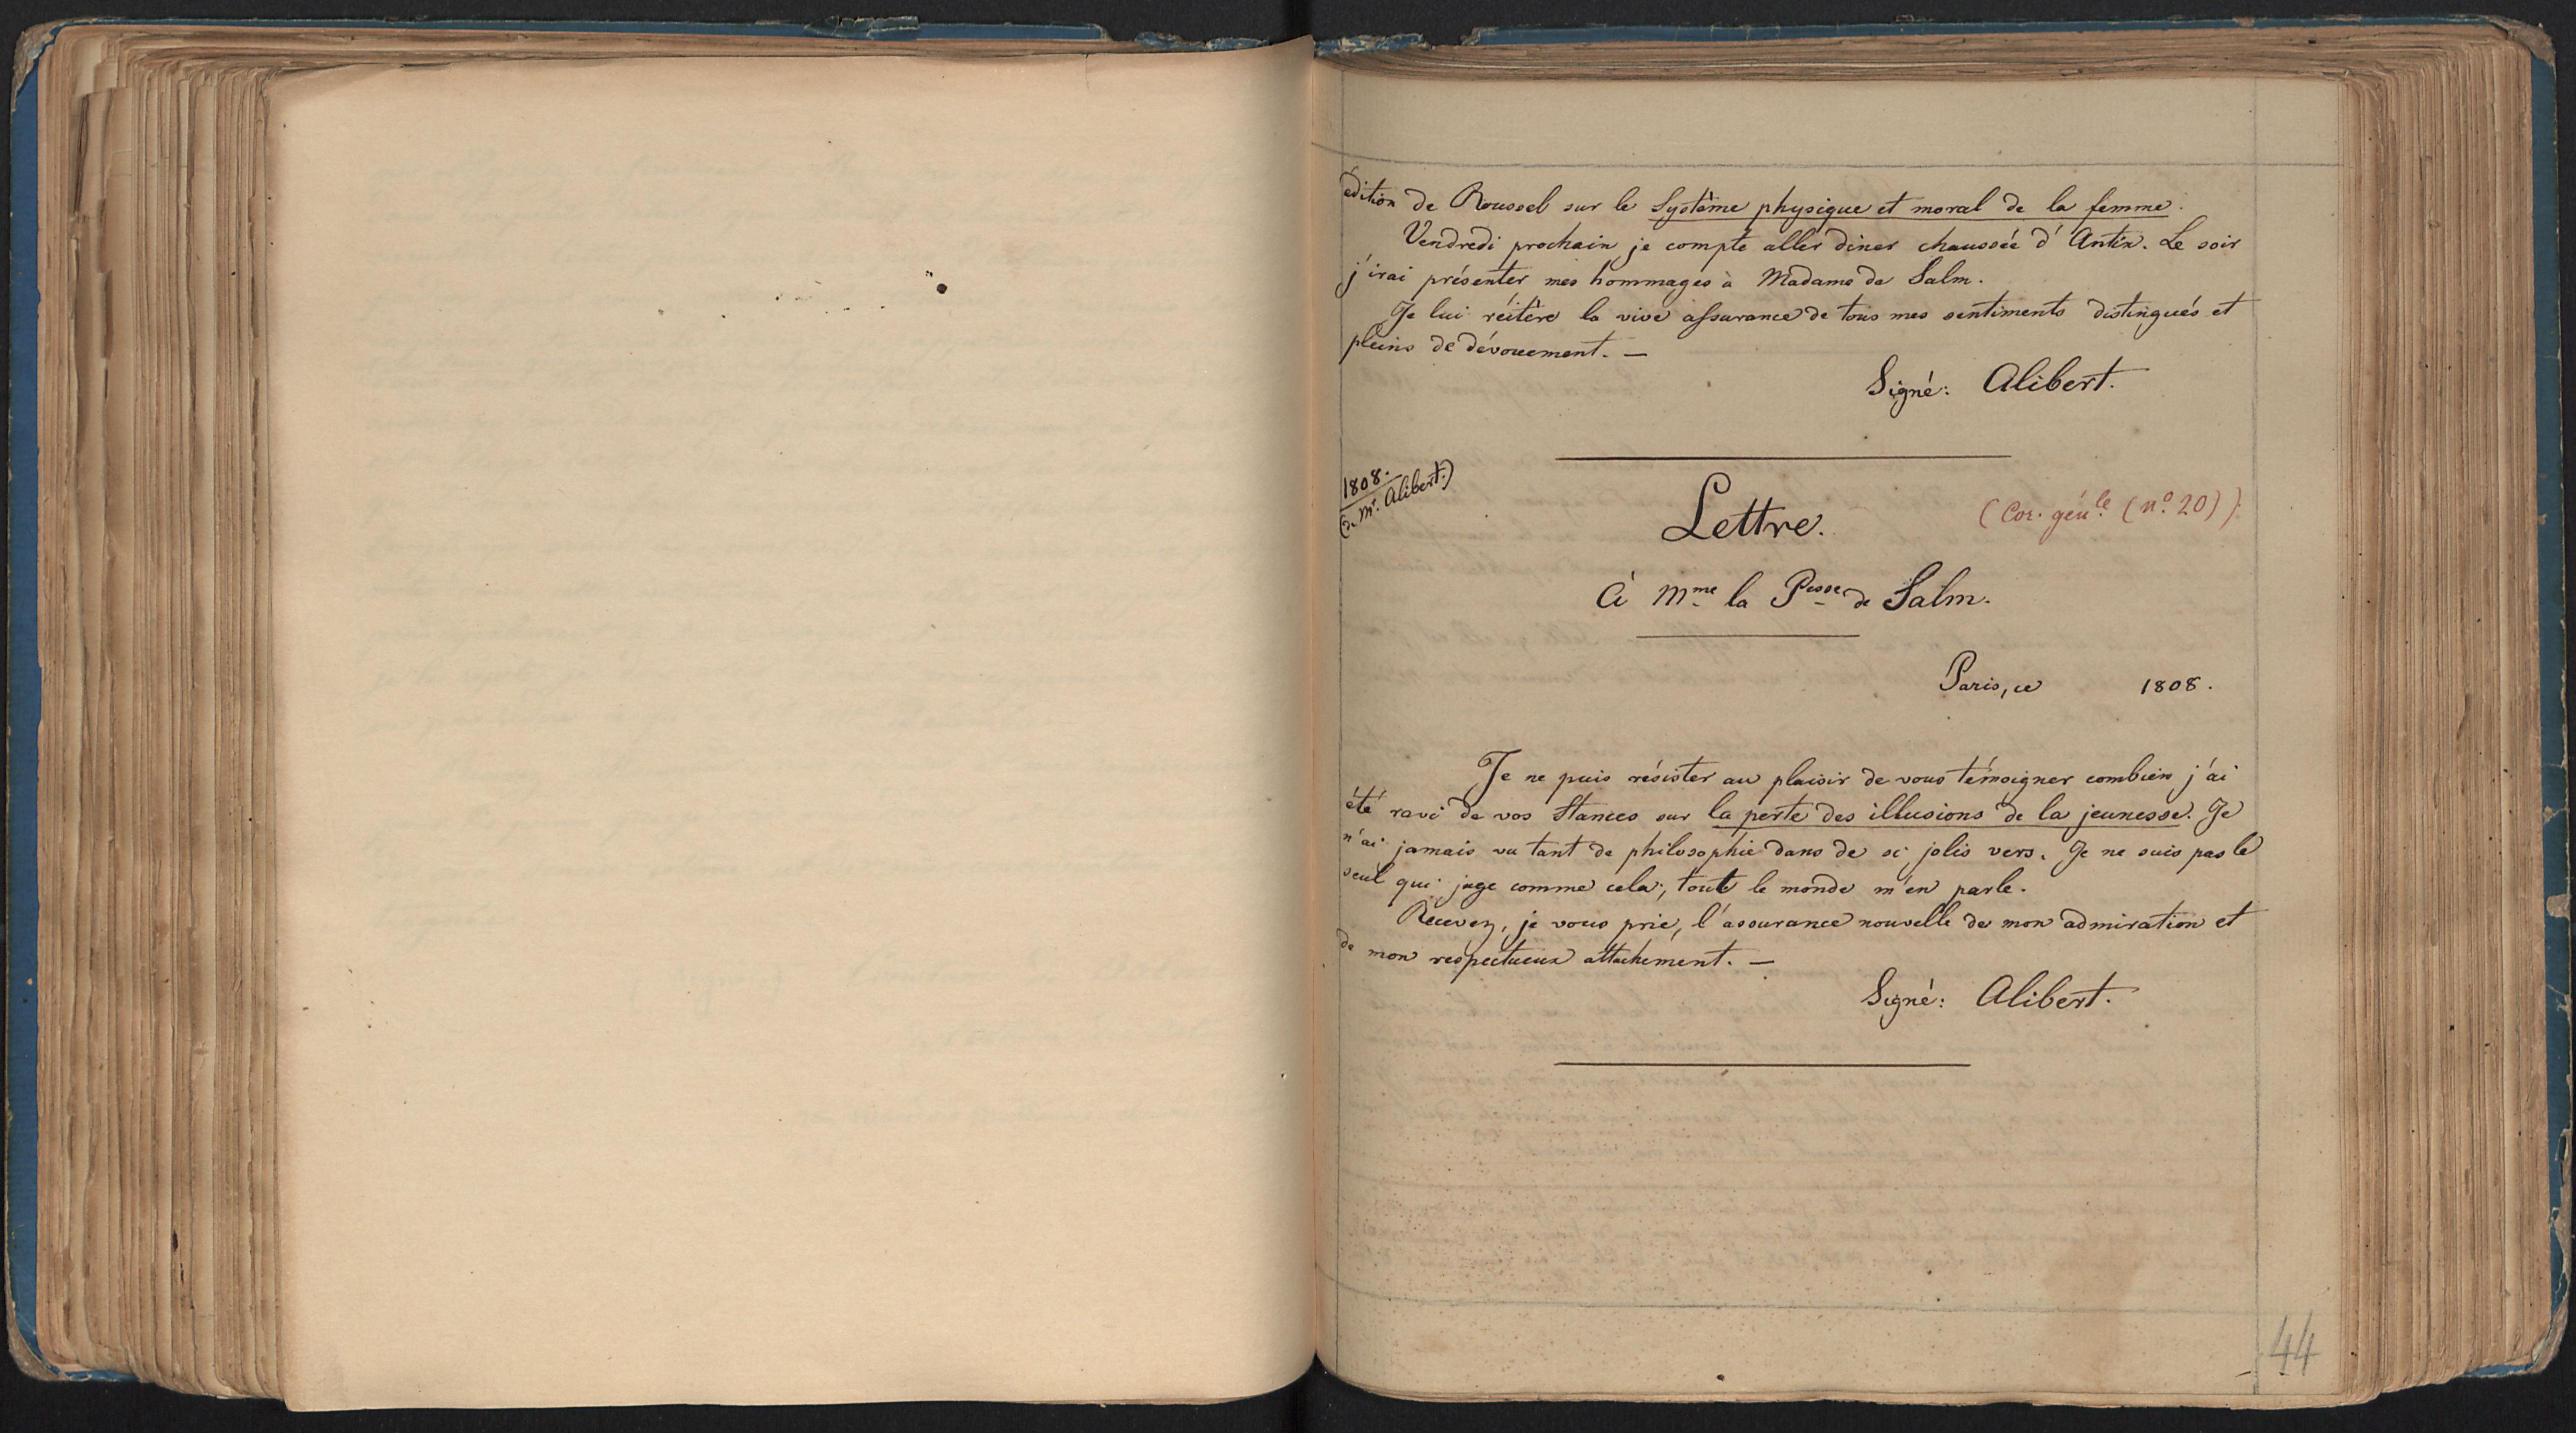 édition de Roussel sur le Système physique et moral de la femme.
Vendredi prochain je compte aller diner chaussée d'Antin. Le soir
j'irai présenter mes hommages à Madame de Salm.
Je lui réitère la vive assurance de tous mes sentiments distingués et
pleins de dévouement. —
Signé: Alibert.
1808.
(de Mr. Alibert.)
Lettre.
(Cor. génle (no. 20))
À Mme la Pesse de Salm.
Paris, ce 1808.
Je ne puis résister au plaisir de vous témoigner combien j'ai
été ravi de vos Stances sur la perte des illusions de la jeunesse. Je
n'ai jamais vu tant de philosophie dans de si jolis vers. Je ne suis pas le
seul qui juge comme cela; tout le monde m'en parle.
Recevez, je vous prie, l'assurance nouvelle de mon admiration et
de mon respectueux attachement. —
Signé: Alibert.
44